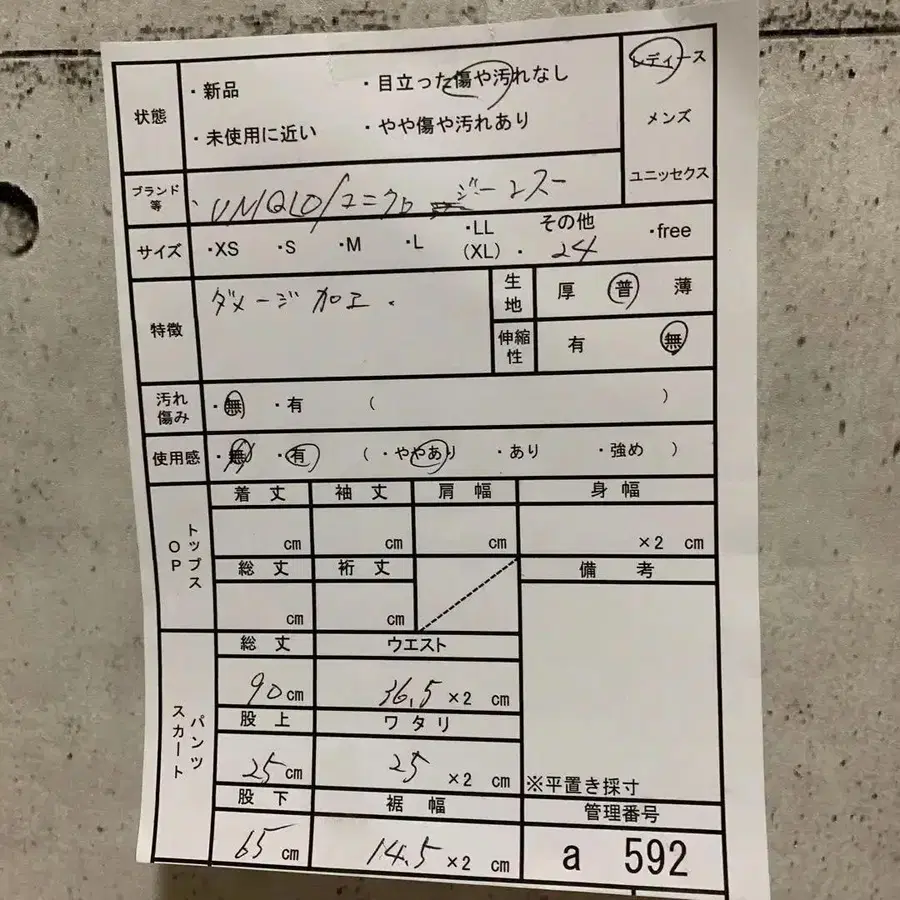 状態 ・新品 ・目立った傷や汚れなし レディース
・未使用に近い ・やや傷や汚れあり メンズ
ユニッセクス
ブランド等 UNIQLO/ユニクロ
サイズ ・XS ・S ・M ・L ・LL (XL) ・その他 24 ・free
特徴 ダメージ加工.
生地 厚 普 薄
伸縮性 有 無
汚れ傷み ・無 ・有 ( )
使用感 ・無 ・有 (・ややあり ・あり ・強め )
トップス OP
着丈 袖丈 肩幅 身幅
cm cm cm ×2 cm
総丈 裄丈 備考
cm cm
パンツ スカート
総丈 ウエスト
90cm 36.5×2 cm
股上 ワタリ
25cm 25 ×2 cm
※平置き採寸
股下 裾幅 管理番号
65 cm 14.5×2 cm a 592